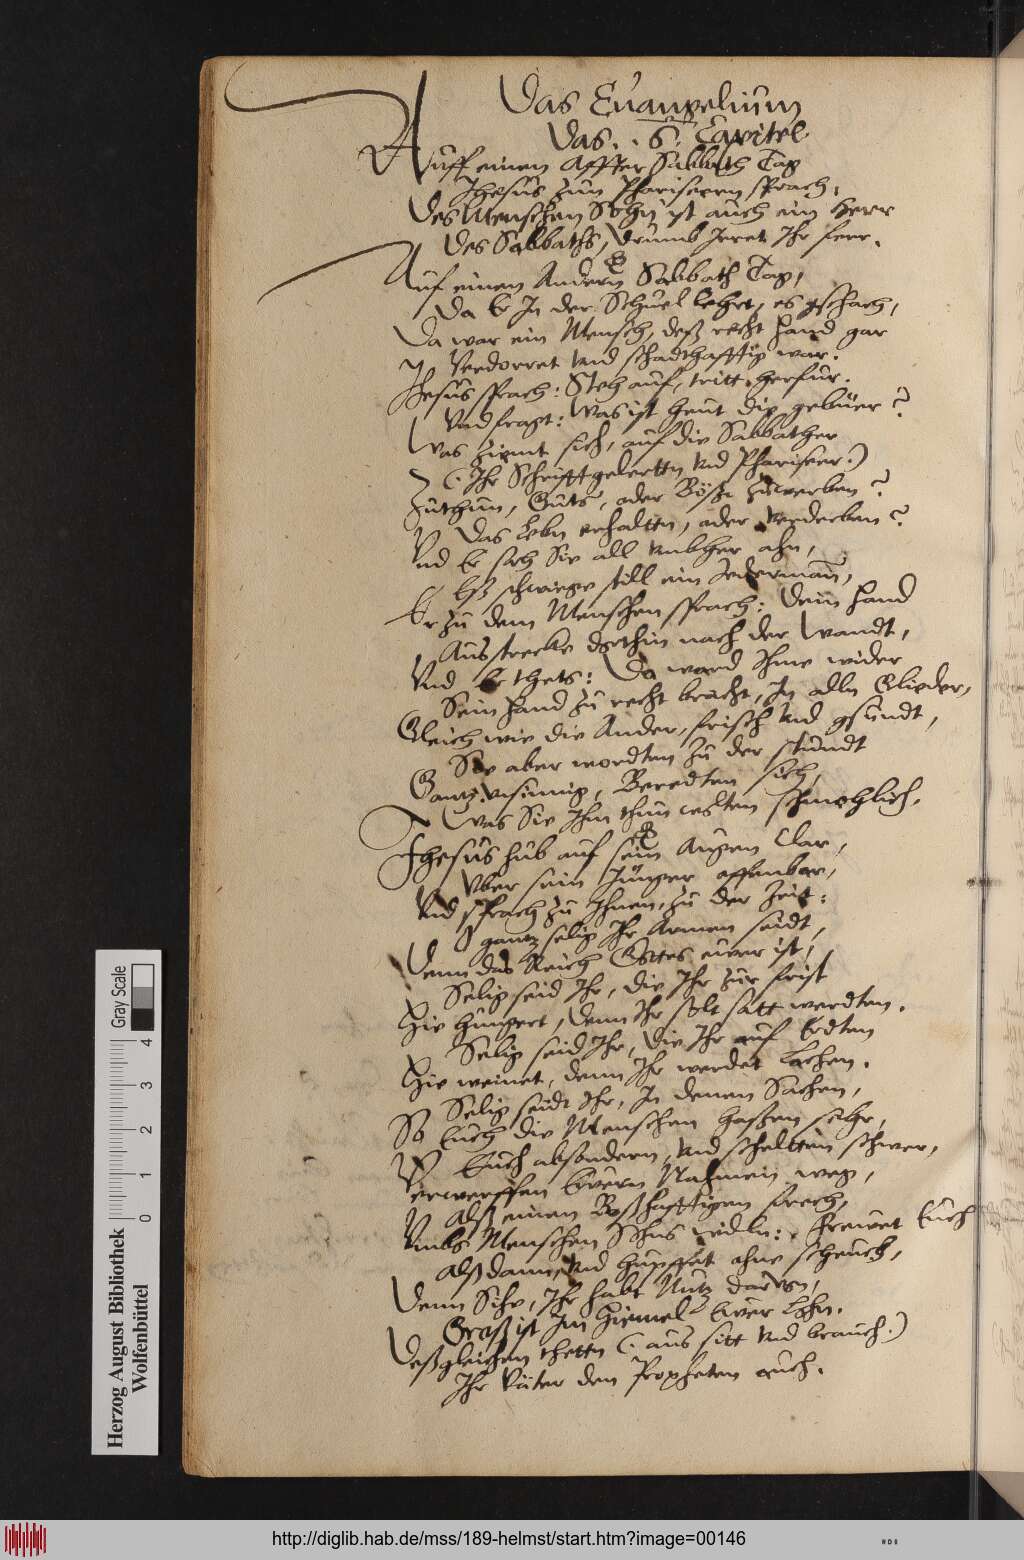 Das Euangelium
Das .6. Capitel
Auff einen Affter Sabbath Tag
Jhesus zun Phariseern sprach:
Des Menschen Sohn ist auch ein Herr
Des Sabbaths, drumb Jrret Ihr ferr.
Auf einen Andern Sabbath Tag,
Da Er In der Schuel lehrt, es gschach,
Da war ein Mensch, deß recht Hand gar
Verdorret vnd schadthafftig war.
Jhesus sprach: Steh auf, tritt herfur.
Vnd fragt: Was ist heut die gebüer?
Was ziemt sich, auf die Sabbather
(Ihr Schrifftgelertten vnd Phariseer.)
Zuthun, Guts, oder Böß zuwerben?
Das Lebn erhaltten, oder verderben?
Vnd Er sah Sie all vmbher ahn,
Eß schwiege still ein Jederman,
Er zu dem Menschen sprach: Dein Hand
Ausstrecke dorthin nach der Wandt,
Vnd Er thets: Da ward Ihme wider
Sein Hand zu recht bracht, In alln Glieder,
Gleich wie die Ander, frisch vnd gsundt,
Sie aber wordten zu der stundt
Gantz vnsinnig, Beredten sich,
Was Sie Ihm thun woltten schmehlich.
Jhesus hub auf sein Augen Clar,
Vber sein Jünger offenbar,
Vnd sprach zu Ihnen, zu der Zeit:
O gantz selig Ihr Armen seidt,
Denn das Reich Gottes euer ist,
Selig seid Ihr, die Ihr zur frist
Hie hungert, denn Ihr solt satt werdten.
Selig seid Ihr, die Ihr auf Erdten
Hie weinet, denn Ihr werdet Lachen.
Selig seidt Ihr, In denen Sachen,
So Euch die Menschen haßen sehr,
Euch absondern, vnd scheltten schwer,
Verwerffen Euern Nahmen weg,
Alß einen Boßhafftigen frech,
Vmbs Menschen Sohns willn: frewet Euch
Alßdann, vnd hupffet ohne scheuch,
Denn Sihe, Ihr habt Nutz darvon,
Groß ist Im Hiemel Euer Lohn.
Deßgleichen thetten (aus sitt vnd brauch.)
Ihr Väter den Propheten auch.
Herzog August Bibliothek
Wolfenbüttel
0 1 2 3 4
Gray Scale
http://diglib.hab.de/mss/189-helmst/start.htm?image=00146